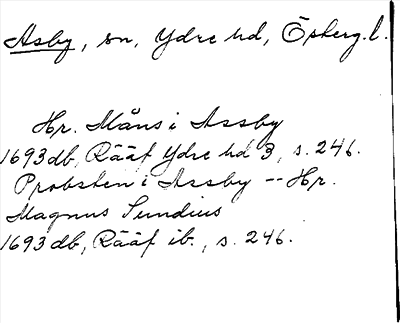 Asby, sn, Ydre hd, Österg.l.
Hr. Måns i Assby
1693 db, Rääf Ydre hd 3, s. 246.
Probsten i Assby -- Hr.
Magnus Sundius
1693 db, Rääf ib., s. 246.